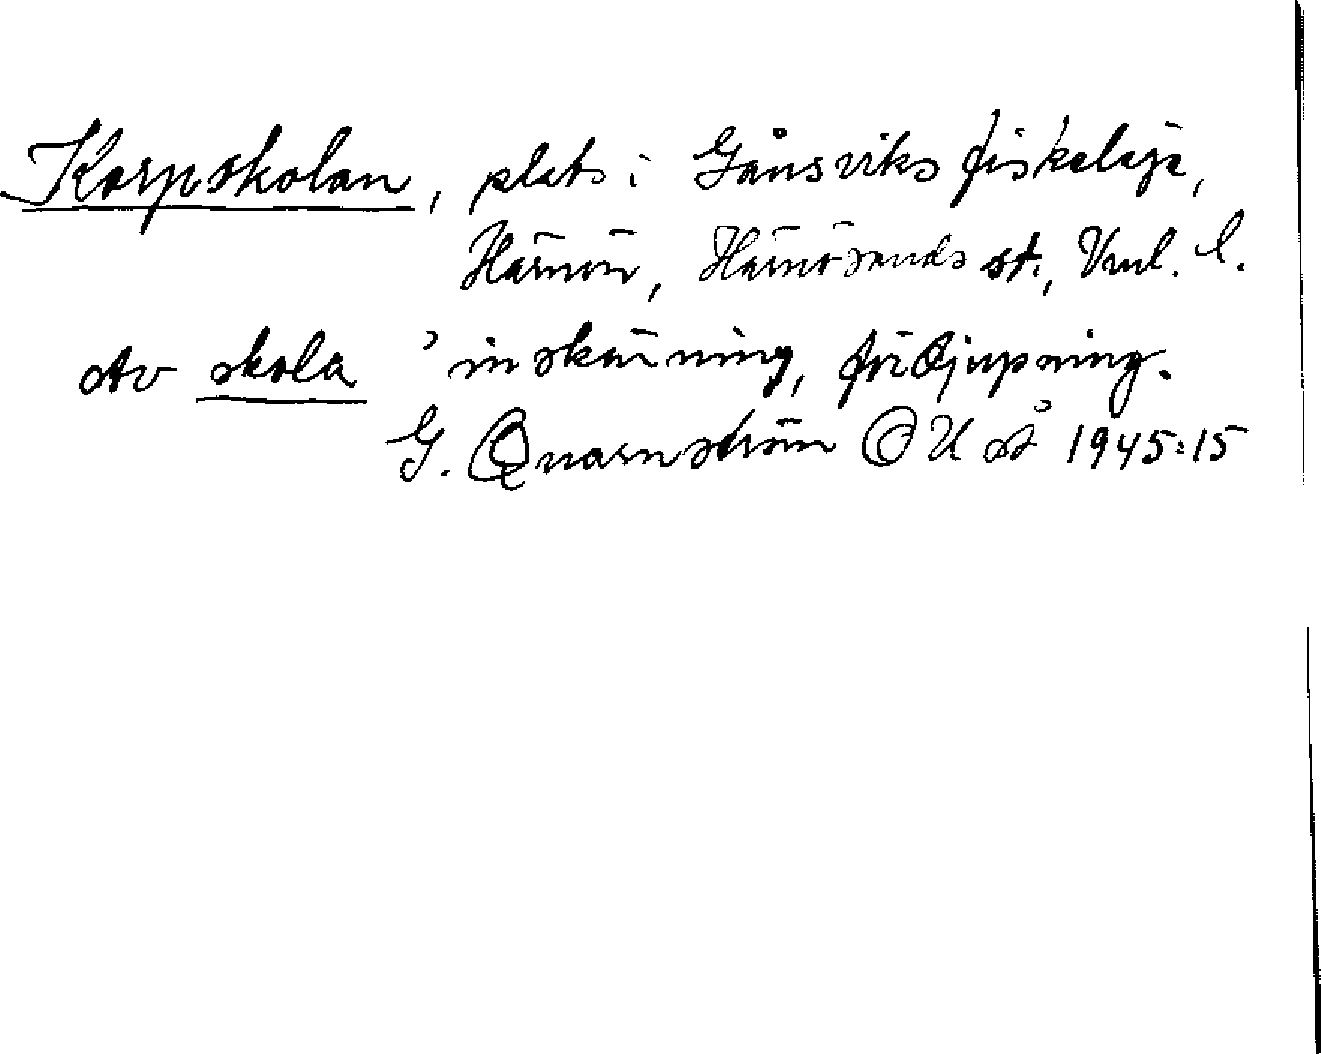 Korpskolan, plats i Gånsviks fiskeläge,
Härnön, Härnösands st., Vnl. l.
Av skola ’inskärning, fördjupning.
G. Qvarnström OUÅ 1945:15